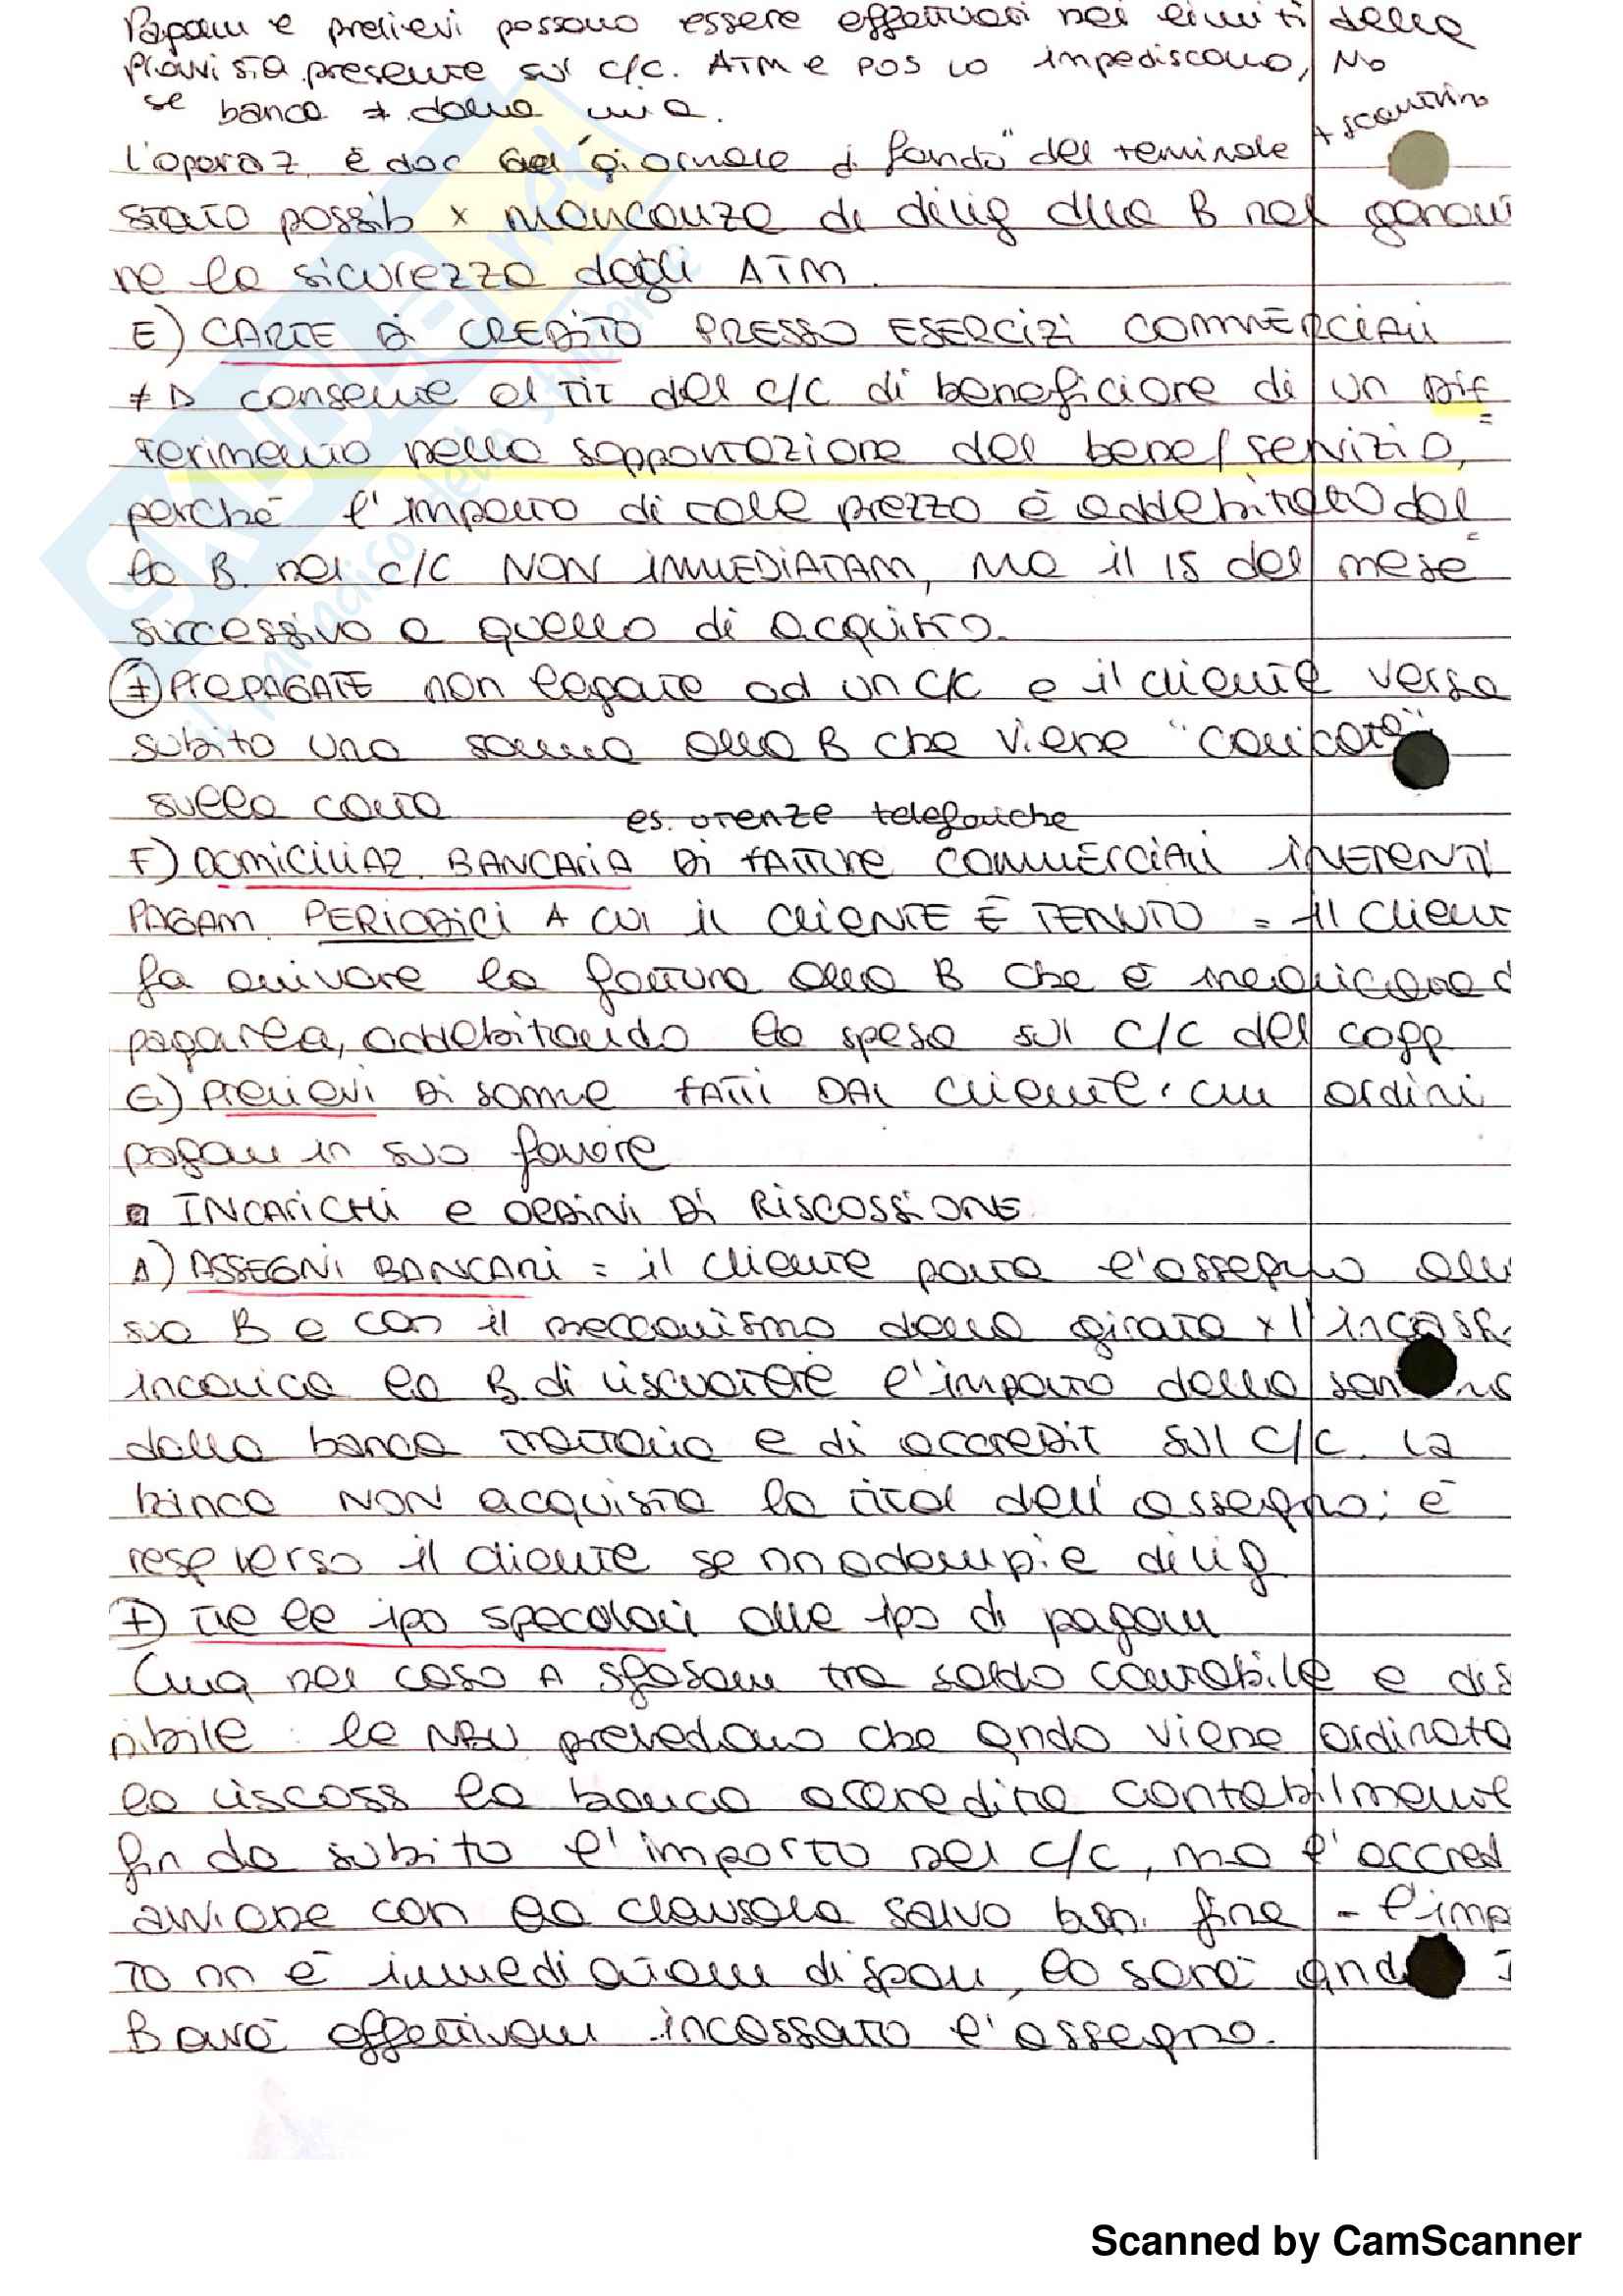 Pagam e prelievi possono essere effettuati nei limiti della
provvista presente sul c/c. ATM e POS lo impediscono, No
se banca ≠ dalla mia.
+ scontrino
l'operaz. è doc dal "giornale di fondo" del terminale
stato possib x mancanza di dilig della B nel garanti
re la sicurezza degli ATM.
E) CARTE DI CREDITO PRESSO ESERCIZI COMMERCIALI
≠ D consente al tit del c/c di beneficiare di un dif=
ferimento nella sopportazione del bene/servizio,
perché l'importo di tale prezzo è addebitato dal
la B. nel c/c NON IMMEDIATAM, ma il 15 del mese
successivo a quello di acquisto.
≠ PREPAGATE non legate ad un c/c e il cliente versa
subito una somma alla B che viene "caricata"
sulla carta
es. utenze telefoniche
F) DOMICILIAZ. BANCARIA DI FATTURE COMMERCIALI INERENTI
PAGAM. PERIODICI A CUI IL CLIENTE È TENUTO = il client
fa arrivare la fattura alla B che è incaricata d
pagarla, addebitando la spesa sul c/c del
G) PRELIEVI DI SOMME FATTI DAL cliente: ordini
pagam in suo favore
INCARICHI e ORDINI DI RISCOSSIONE
A) ASSEGNI BANCARI = il cliente porta l'assegno alla
sua B e con il meccanismo della girata x l'incass
incarica la B di riscuotere l'importo della
dalla banca trattaria e di accredit sul c/c. La
banca NON acquista la titol dell'assegno; è
resp verso il cliente se nn adempie dilig
≠) tte le ipo specolari alle ipo di pagam
Cmq nel caso A sfasam tra saldo contabile e dis
nibile: le NBU prevedono che qndo viene ordinata
la riscoss la banca accredita contabilmente
fin da subito l'importo nel c/c, ma l'accred
avviene con la clausola salvo buon fine - l'impo
to nn è immediatam dispon, lo sarà qndo
B avrà effettivam incassato l'assegno.
Scanned by CamScanner